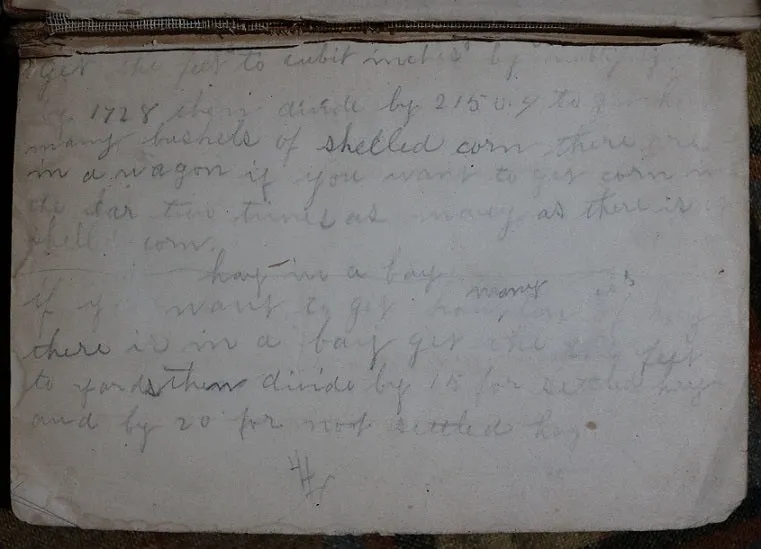 Get the feet to cubit inches by
by 1728 then divide by 2150.4 to
many bushels of shelled corn there are
in a wagon if you want to get corn in
the Ear two times as many as there is
shell corn.
hay in a bay
if y want to get many
there is in a bay get the feet
to yards then divide by 15 for settled hay
and by 20 for noot settled hay